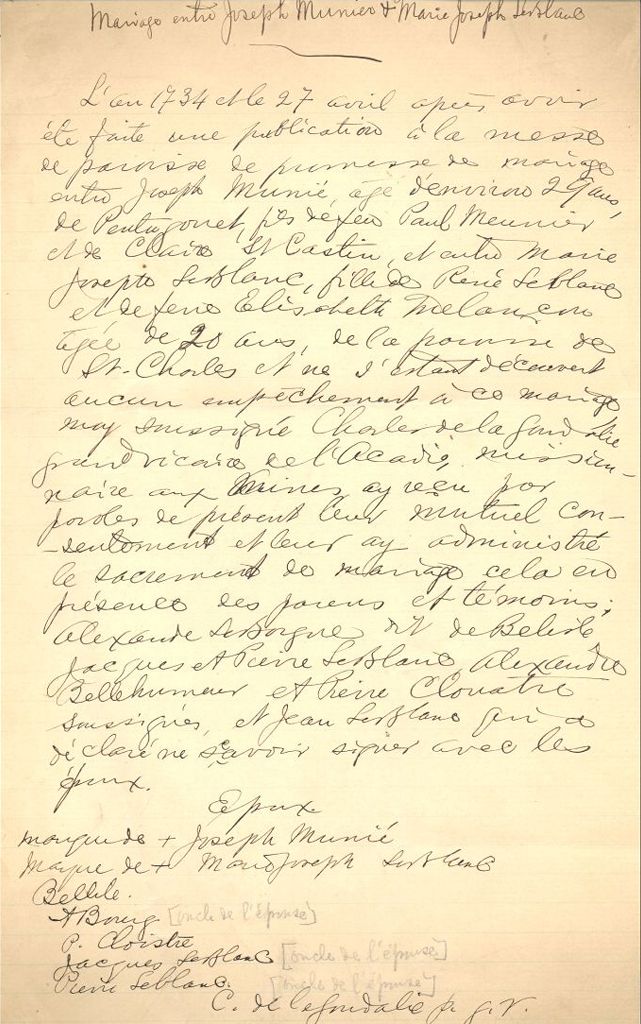 Mariage entre Joseph Munier & Marie Joseph LeBlanc
L'an 1734 et le 27 avril après avoir
été faite une publication à la messe
de paroisse de promesse de mariage
entre Joseph Munié, agé d'environ 29 ans,
de Pentagouet, fils de feu Paul Meunier
et de Claire St Castin, et entre Marie
Joseph LeBlanc, fille de René LeBlanc
et de feue Elisabeth Melançon
agée de 20 ans, de la paroisse de
St-Charles et ne s'estant découvert
aucun empêchement à ce mariage
moy soussigné Charles de la Goudalie
grand vicaire de l'Acadie, mission-
naire aux Mines, ay reçu par
paroles de présent leur mutuel con-
-sentement et leur ay administré
le sacrement de mariage cela en
présence des parens et témoins;
Alexandre LeBorgne dit de Belisle
Jacques et Pierre LeBlanc, Alexandre
Bellehumeur et Pierre Clouatre
soussignés, et Jean LeBlanc qui a
déclaré ne savoir signer avec les
époux.
Epoux
marque de + Joseph Munié
Marque de + Marie Joseph LeBlanc
Bellile.
A Bourg [oncle de l'épouse]
P. Cloistre
Jacques LeBlanc [oncle de l'épouse]
Pierre Leblanc. [oncle de l'épouse]
C. de la Goudalie p. g. v.